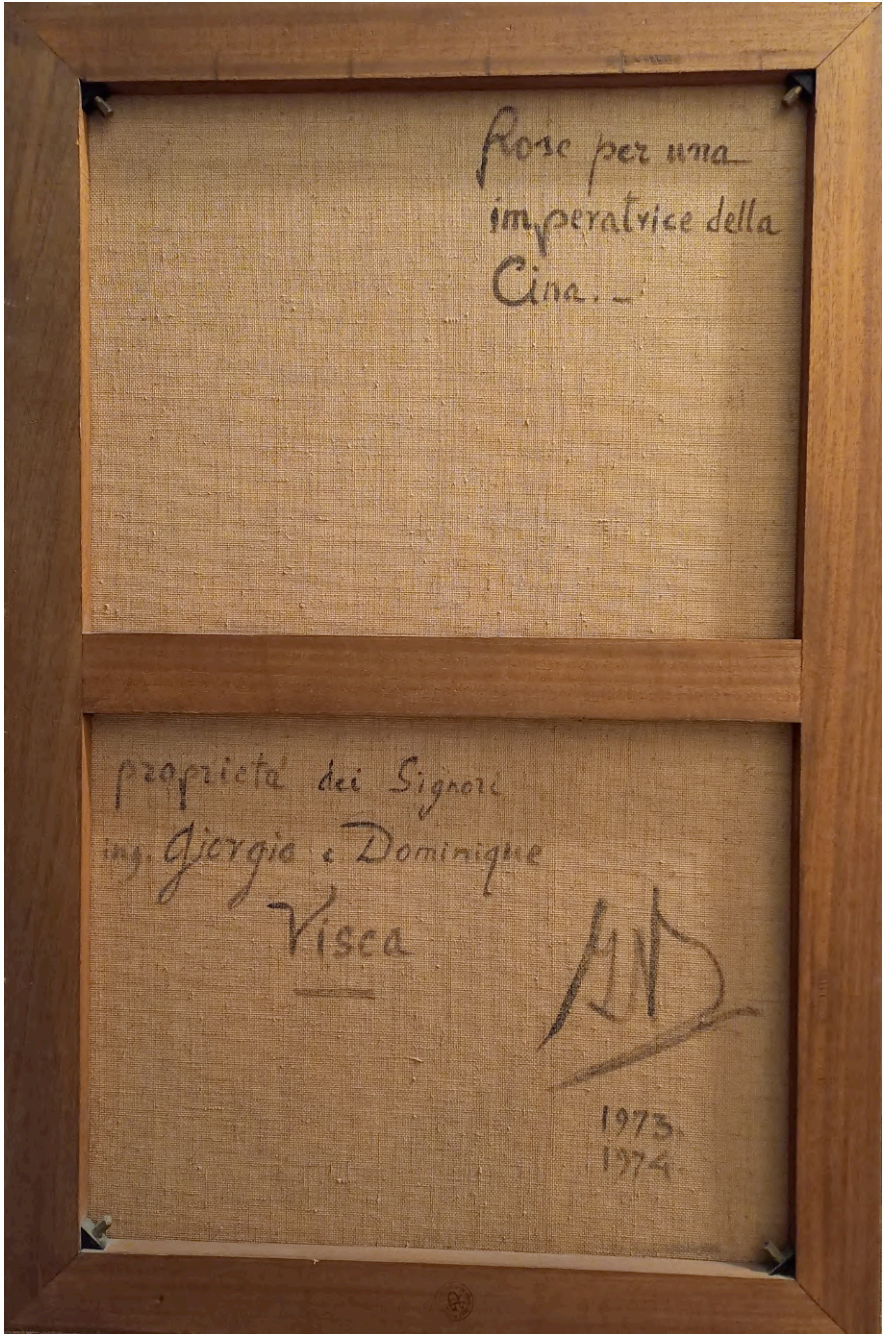 Rose per una
imperatrice della
Cina. _
proprietà dei Signori
ing. Giorgio e Dominique
Visca
1973.
1974.